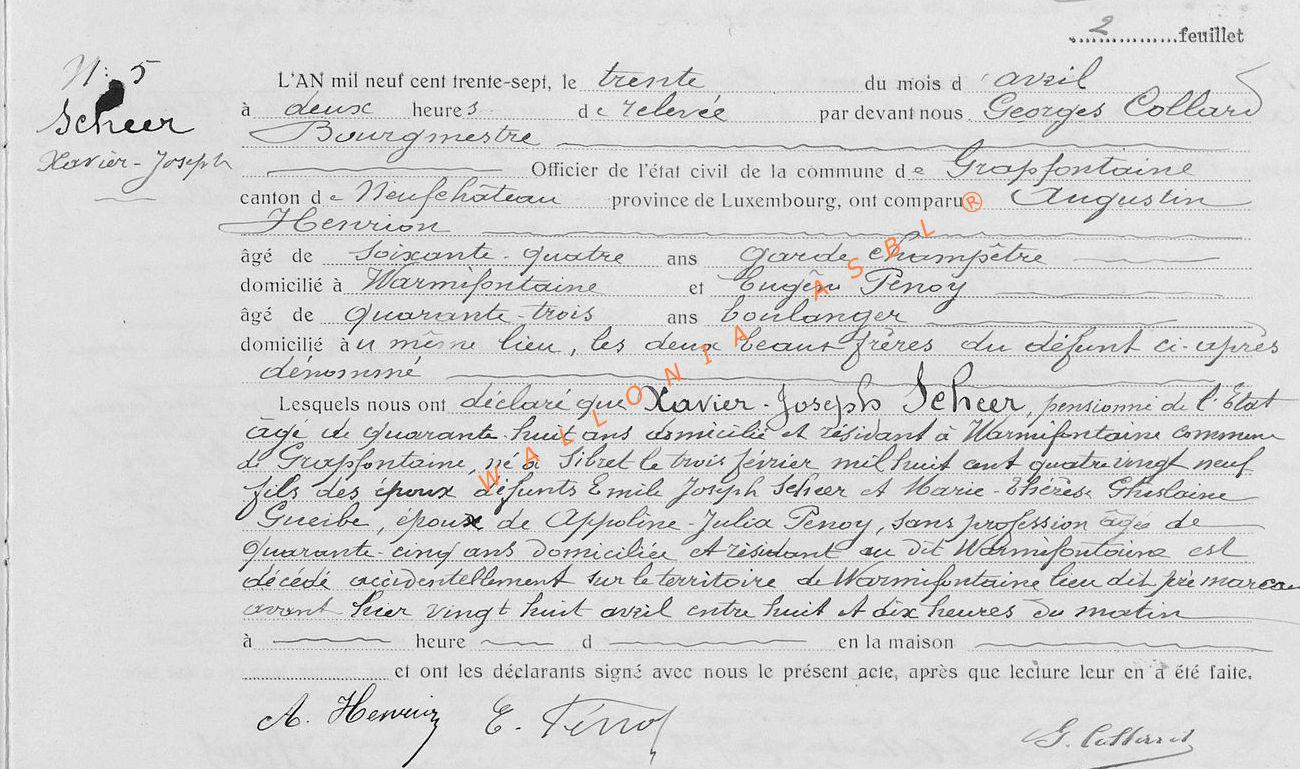 2 feuillet
N: 5
Scheer
Xavier-Joseph
L'AN mil neuf cent trente-sept, le trente du mois d'avril
à deux heures de relevée par devant nous Georges Collard
Bourgmestre
Officier de l'état civil de la commune de Grapfontaine
canton de Neufchâteau province de Luxembourg, ont comparu Augustin
Henrion
âgé de soixante-quatre ans garde champêtre
domicilié à Warmifontaine et Eugène Penoy
âgé de quarante-trois ans boulanger
domicilié au même lieu, les deux beaux frères du défunt ci-après
dénommé
Lesquels nous ont déclaré que Xavier-Joseph Scheer, pensionné de l'Etat
âgé de quarante-huit ans domicilié et résidant à Warmifontaine commune
de Grapfontaine, né à Sibret le trois février mil huit cent quatre vingt neuf
fils des époux défunts Emile Joseph Scheer et Marie-Thérèse Ghislaine
Gueibe, époux de Appoline-Julia Penoy, sans profession âgée de
quarante-cinq ans domiciliée et résidant au dit Warmifontaine est
décédé accidentellement sur le territoire de Warmifontaine lieu dit pré
avant hier vingt huit avril entre huit et dix heures du matin
à heure d en la maison
et ont les déclarants signé avec nous le présent acte, après que lecture leur en a été faite.
A. Henrion E. Penoy
G. Collard
WALLONIA ASBL ®